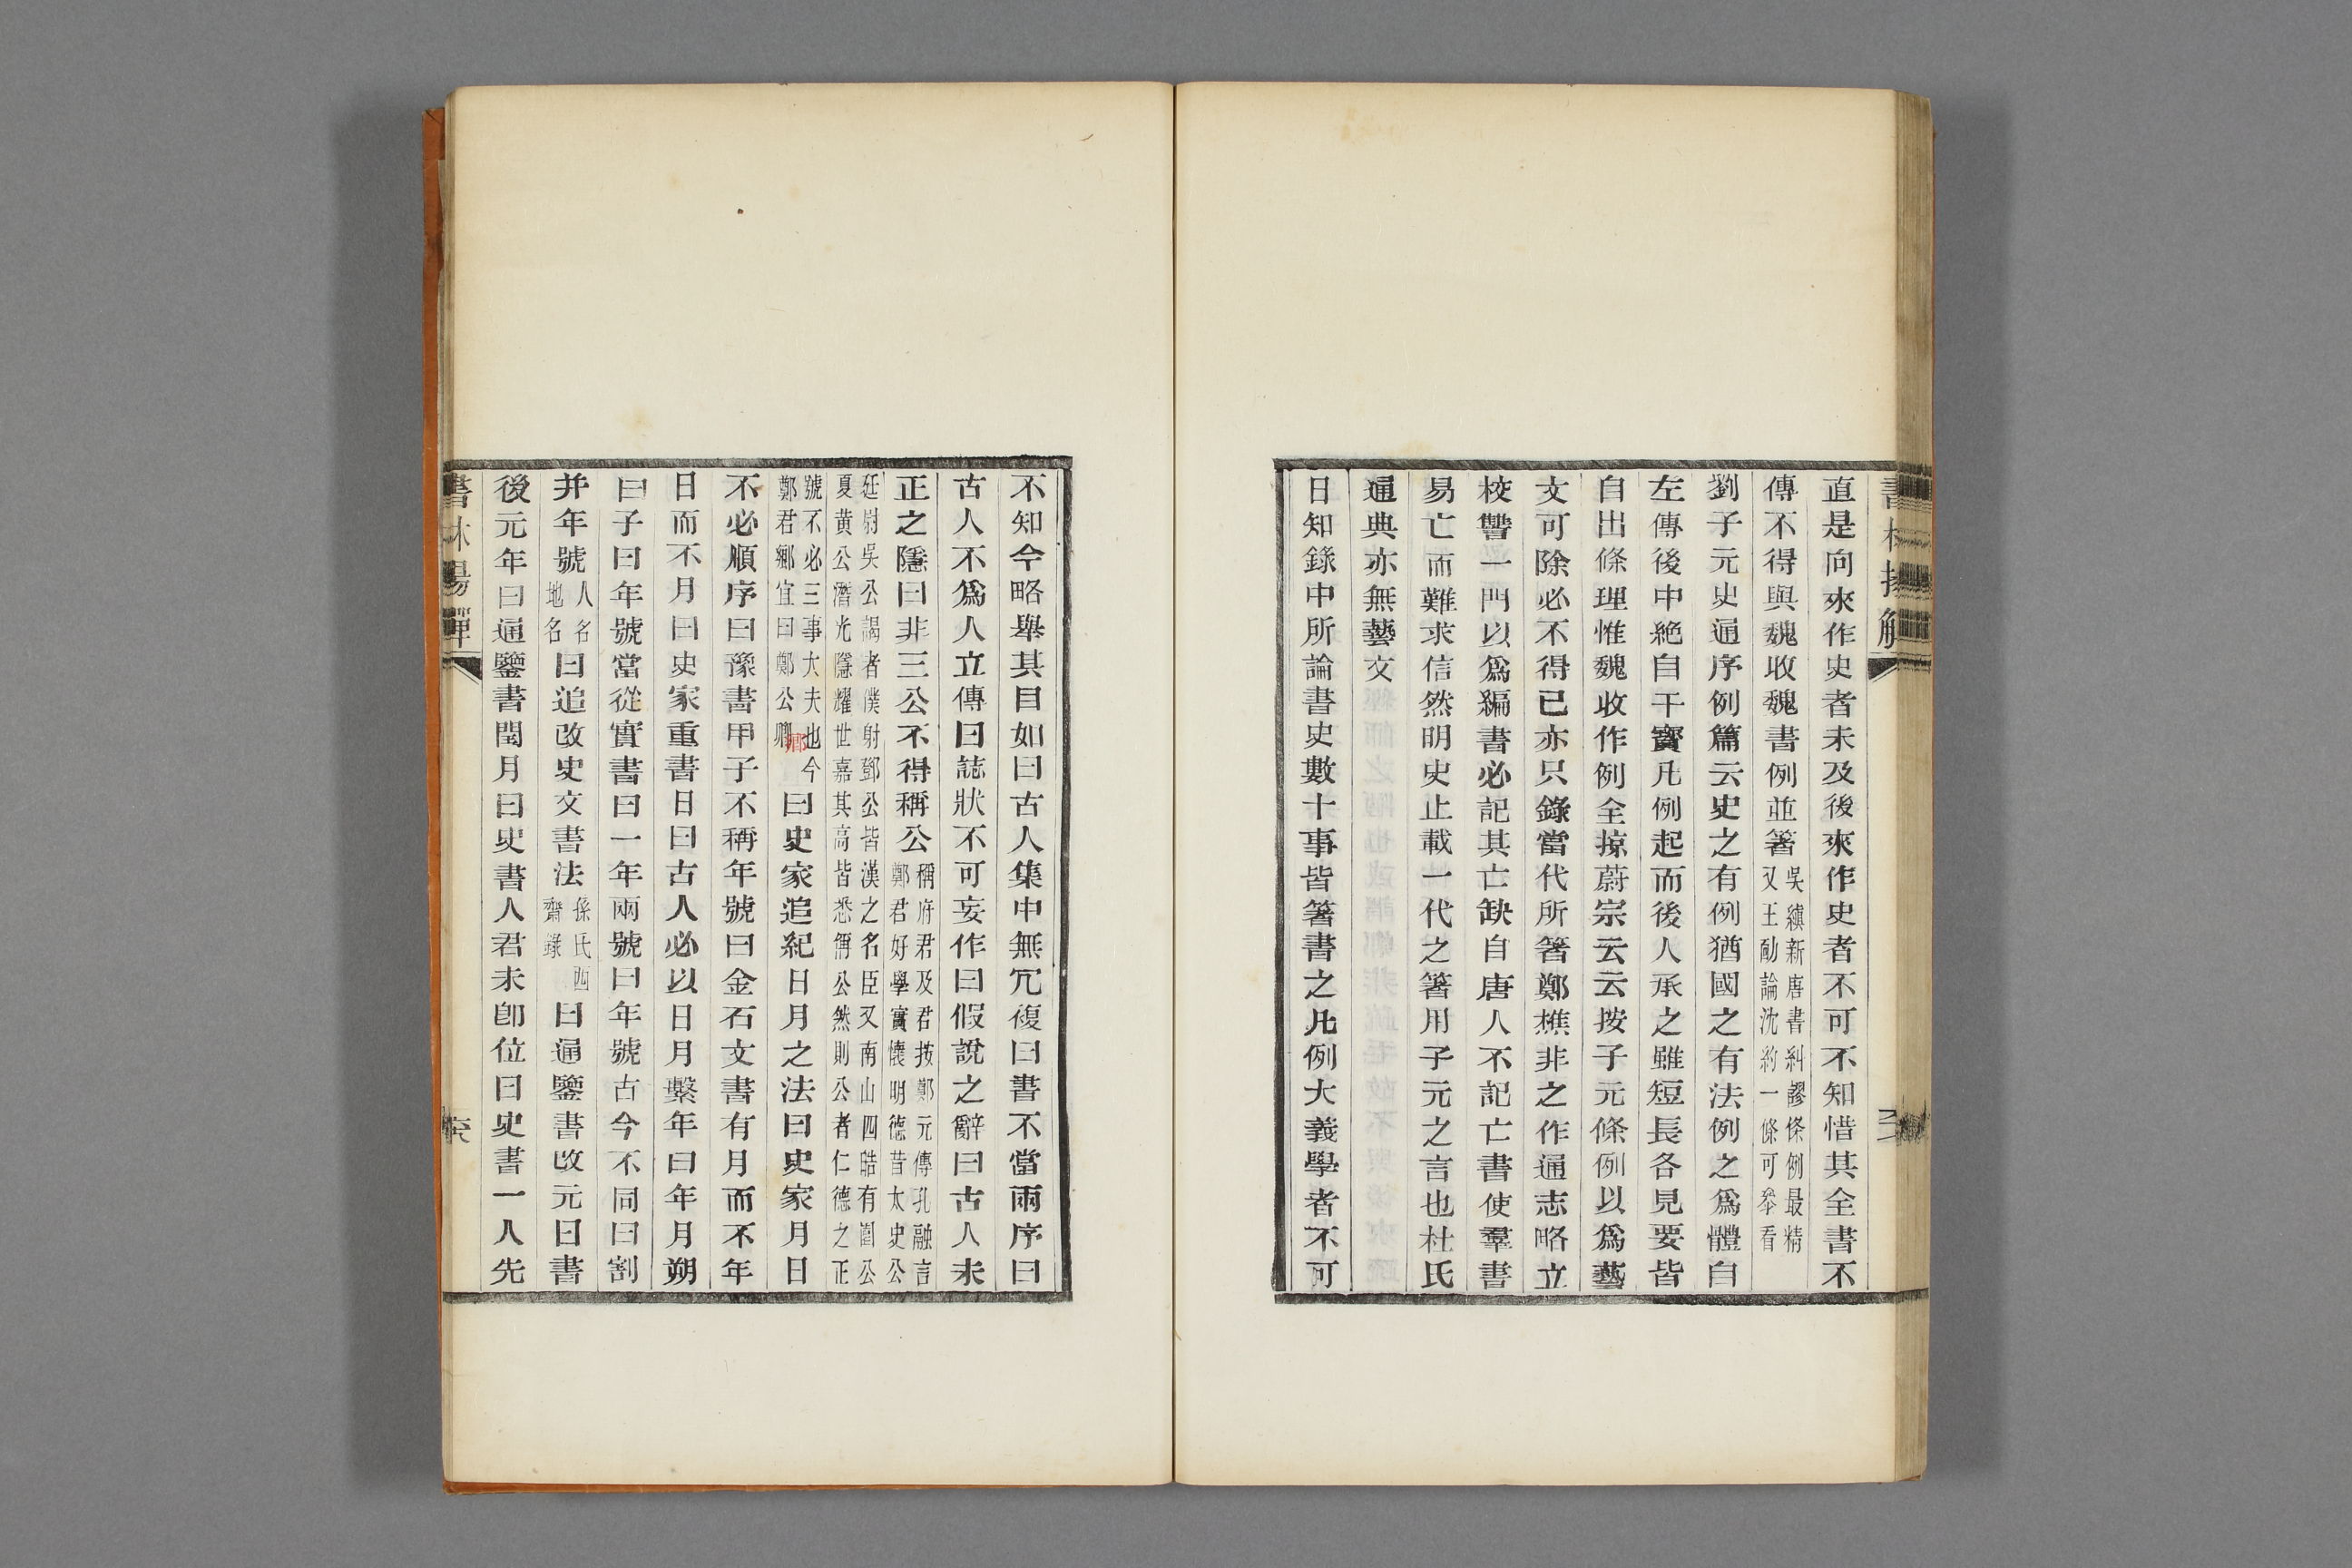 書林揚觶
直是向來作史者未及後來作史者不可不知惜其全書不
傳不得與魏收魏書例並箸吳縝新唐書糾謬條例最精又王勔論沈約一條可參看
劉子元史通序例篇云史之有例猶國之有法例之爲體自
左傳後中絶自干寶凡例起而後人承之雖短長各見要皆
自出條理惟魏收作例全掠蔚宗云云按子元條例以爲藝
文可除必不得已亦只錄當代所箸鄭樵非之作通志略立
校讐一門以爲編書必記其亡缺自唐人不記亡書使羣書
易亡而難求信然明史止載一代之箸用子元之言也杜氏
通典亦無藝文
日知錄中所論書史數十事皆箸書之凡例大義學者不可
不知今略舉其目如曰古人集中無冗複曰書不當兩序曰
古人不爲人立傳曰誌狀不可妄作曰假說之辭曰古人未
正之隱曰非三公不得稱公稱府君及君按鄭元傳孔融言鄭君好學實懷明德昔太史公
廷尉吳公謁者僕射鄧公皆漢之名臣又南山四皓有園公夏黃公潛光隱耀世嘉其高皆悉稱公然則公者仁德之正
號不必三事大夫也今鄭君鄉宜曰鄭公鄉曰史家追紀日月之法曰史家月日
鄉
不必順序曰豫書甲子不稱年號曰金石文書有月而不年
日而不月曰史家重書日曰古人必以日月繫年曰年月朔
日子曰年號當從實書曰一年兩號曰年號古今不同曰割
并年號人名地名曰追改史文書法孫氏西齋錄曰通鑒書改元曰書
後元年曰通鑒書閏月曰史書人君未卽位曰史書一人先
書林揚觶